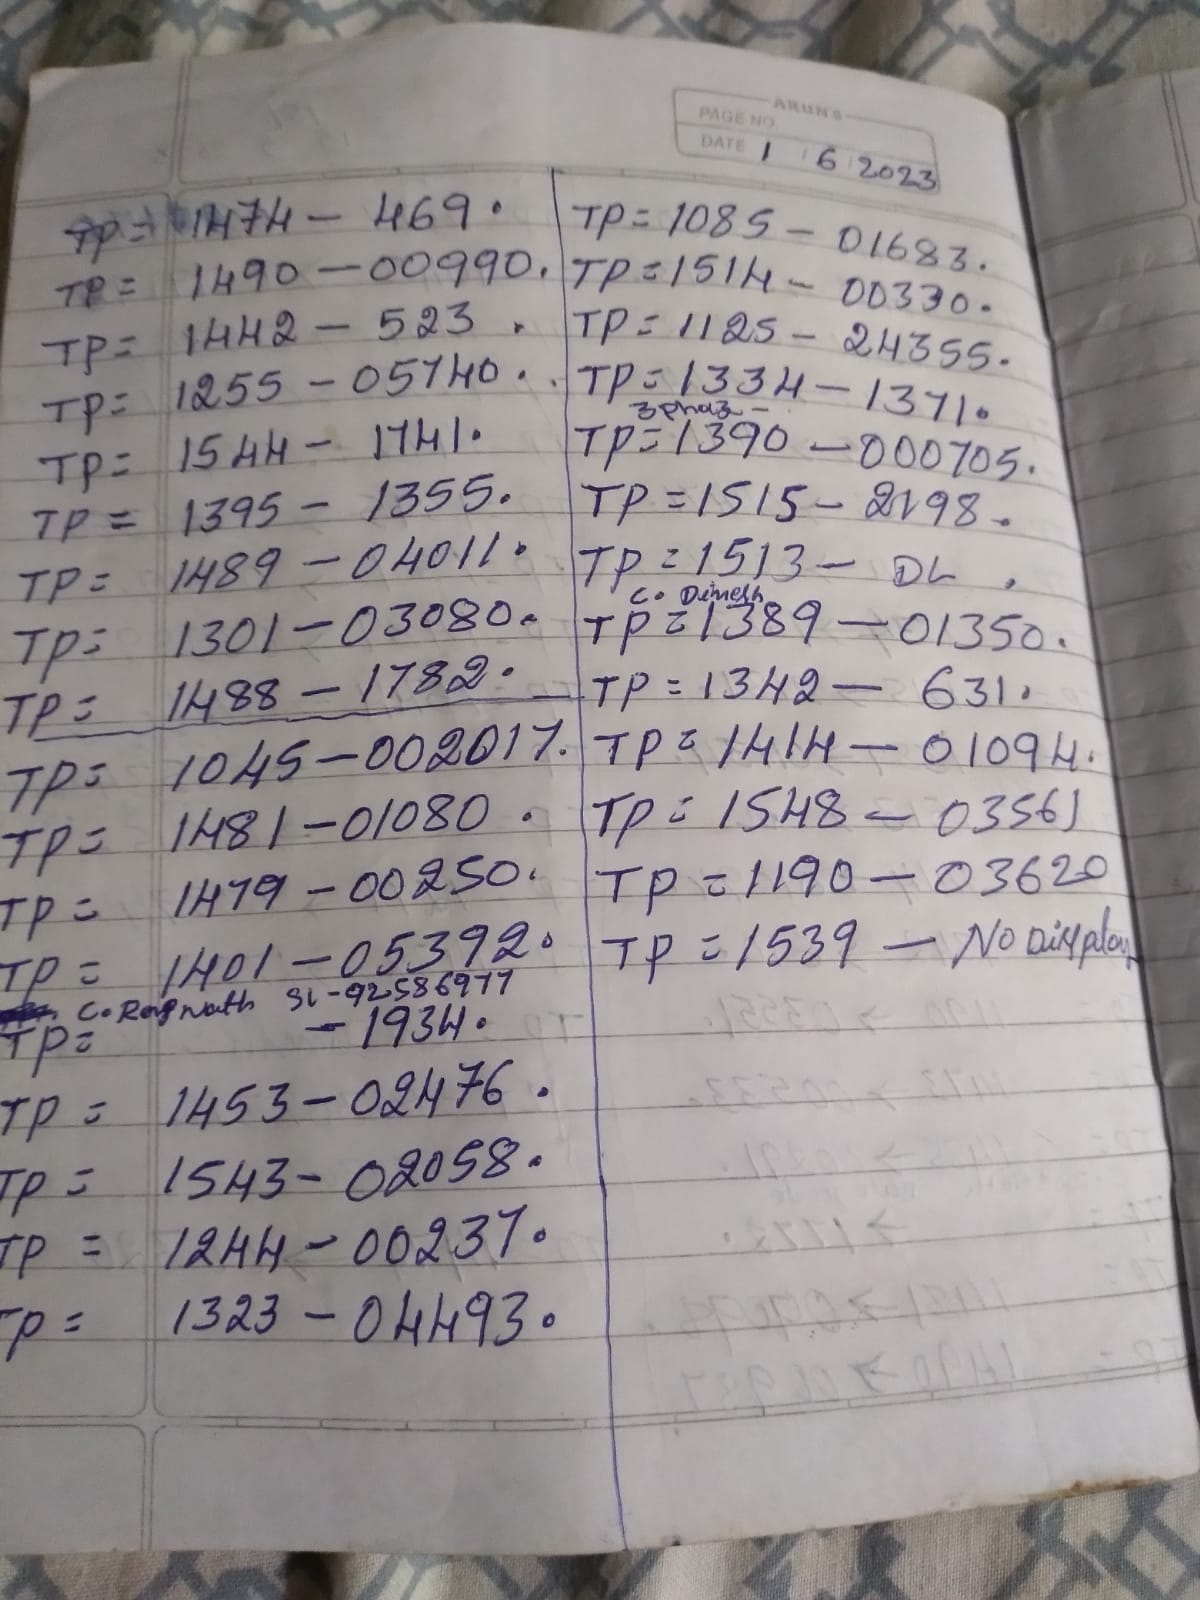 ARUN'S
PAGE NO
DATE 1 / 6 / 2023
TP= 1474 - 469.
TP= 1490 - 00990.
TP= 1442 - 523.
TP= 1255 - 05740.
TP= 1544 - 1741.
TP= 1395 - 1355.
TP= 1489 - 04011.
TP= 1301 - 03080.
TP= 1488 - 1782.
TP= 1045 - 002017.
TP= 1481 - 01080.
TP= 1479 - 00250.
TP= 1401 - 05392.
C. Rag nath SL-92586977
TP= - 1934.
TP= 1453 - 02476.
TP= 1543 - 02058.
TP= 1244 - 00237.
TP= 1323 - 04493.
TP= 1085 - 01683.
TP= 1514 - 00330.
TP= 1125 - 24355.
TP= 1334 - 1371.
3 phaz -
TP= 1390 - 000705.
TP= 1515 - 2198.
TP= 1513 - DL.
C. Dinesh
TP= 1389 - 01350.
TP= 1342 - 631.
TP= 1414 - 01094.
TP= 1548 - 03561
TP= 1190 - 03620
TP= 1539 - No Display